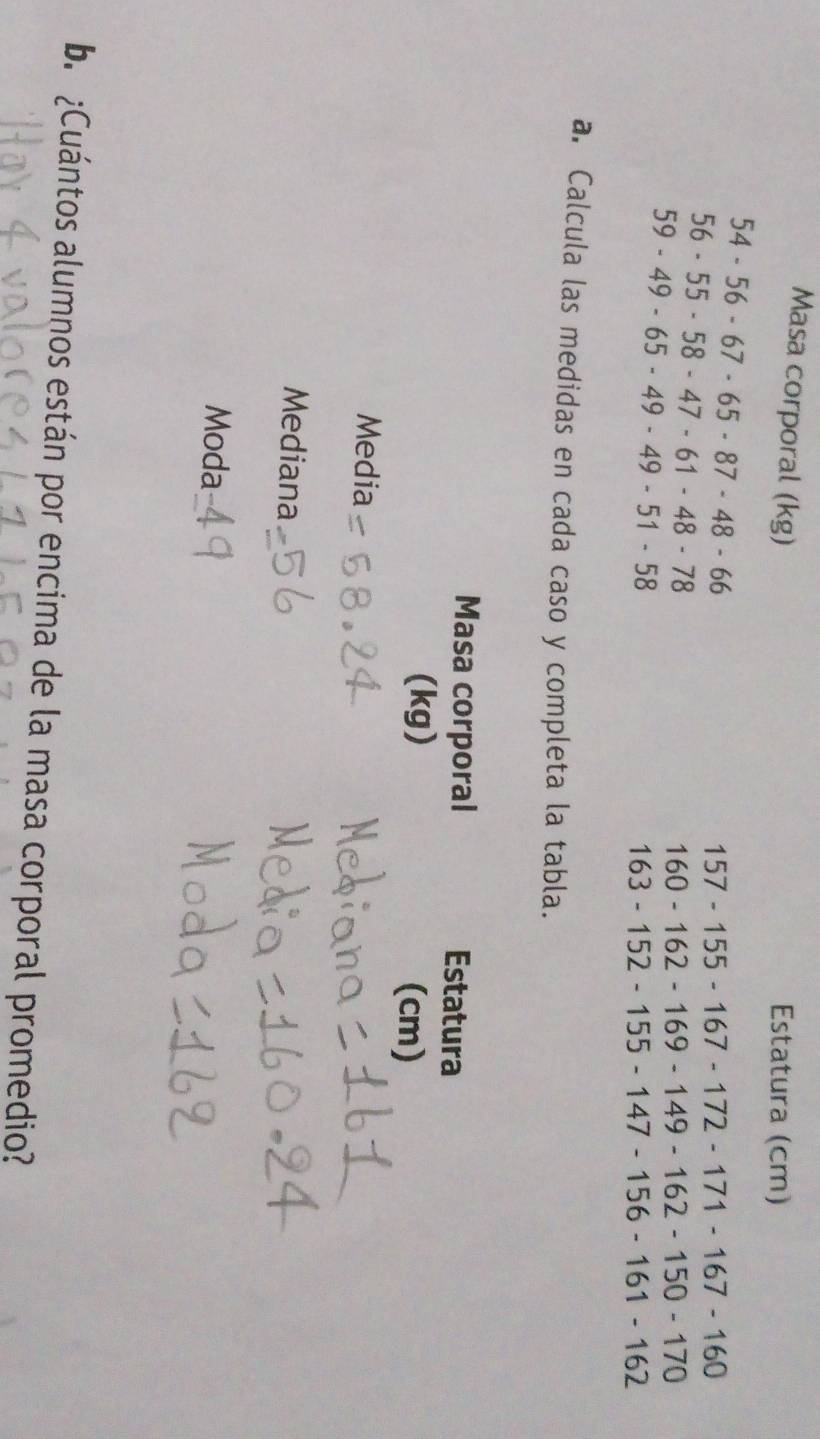 Masa corporal (kg)
54 - 56 - 67 - 65 - 87 - 48 - 66
56 - 55 - 58 - 47 - 61 - 48 - 78
59 - 49 - 65 - 49 - 49 - 51 - 58
Estatura (cm)
157 - 155 - 167 - 172 - 171 - 167 - 160
160 - 162 - 169 - 149 - 162 - 150 - 170
163 - 152 - 155 - 147 - 156 - 161 - 162
a. Calcula las medidas en cada caso y completa la tabla.
Masa corporal (kg)
Estatura (cm)
Media = 58.24 Mediana = 161
Mediana = 56 Media = 160.24
Moda = 49 Moda = 162
b. ¿Cuántos alumnos están por encima de la masa corporal promedio?
Hay 4 valores